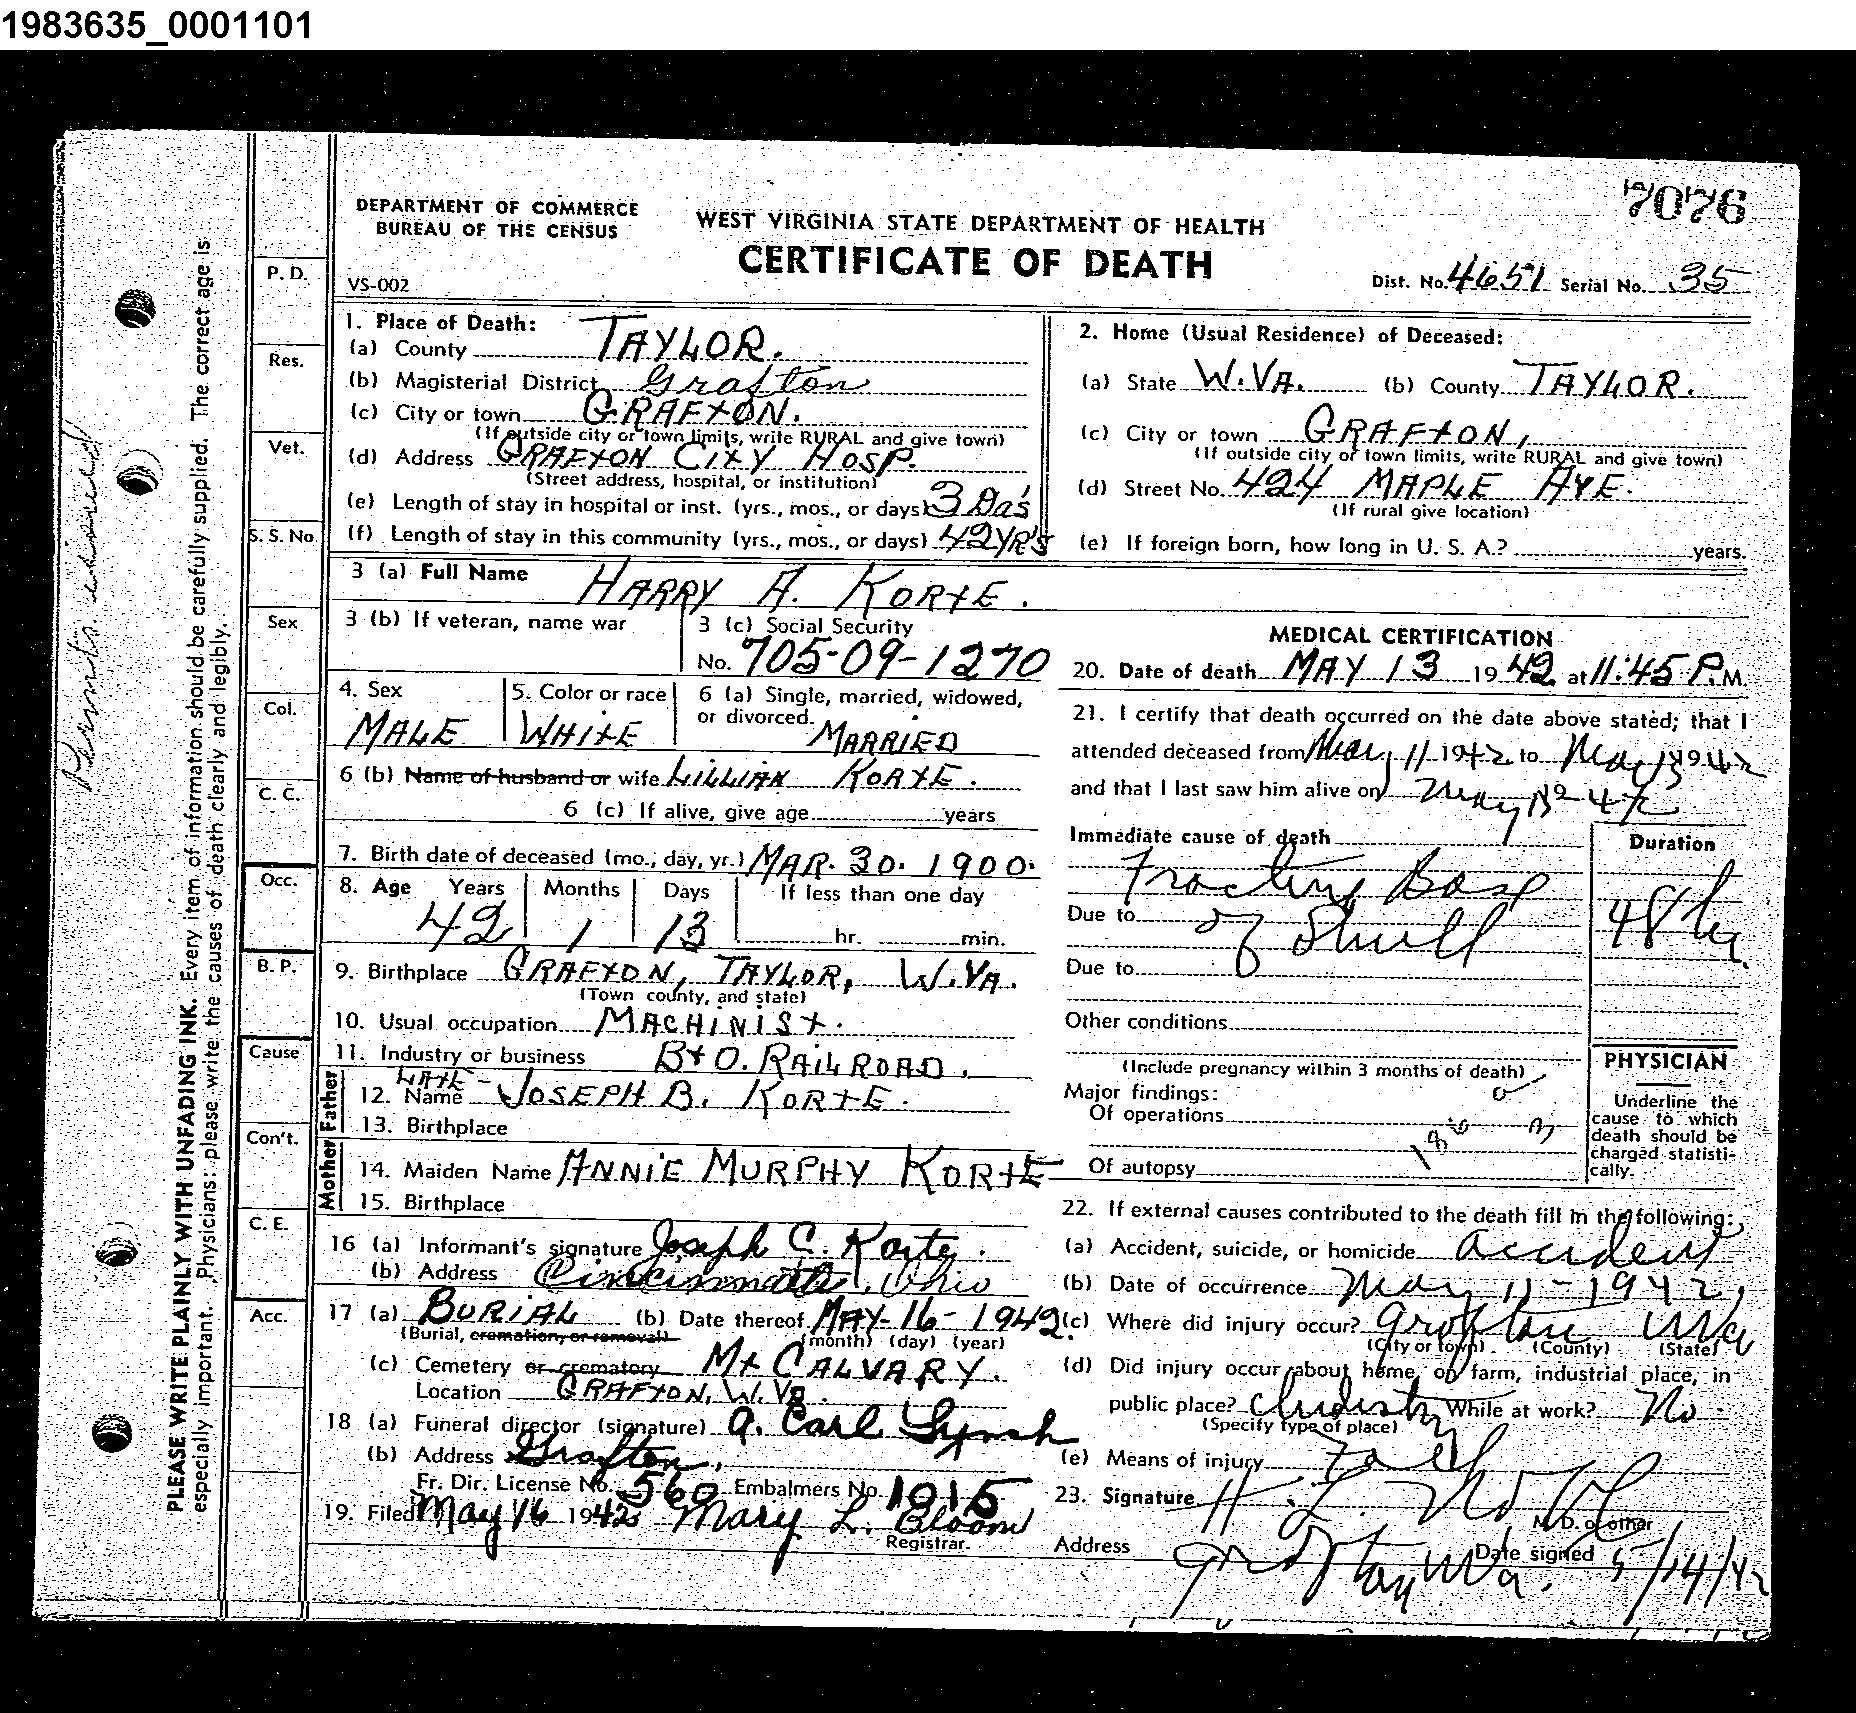 1983635_0001101
7076
DEPARTMENT OF COMMERCE
BUREAU OF THE CENSUS
WEST VIRGINIA STATE DEPARTMENT OF HEALTH
CERTIFICATE OF DEATH
VS-002
Dist. No. 4651 Serial No. 35
1. Place of Death:
(a) County TAYLOR.
(b) Magisterial District Grafton
(c) City or town GRAFTON.
(If outside city or town limits, write RURAL and give town)
(d) Address GRAFTON CITY HOSP.
(Street address, hospital, or institution)
(e) Length of stay in hospital or inst. (yrs., mos., or days) 3 Da's
(f) Length of stay in this community (yrs., mos., or days) 42 YR'S
2. Home (Usual Residence) of Deceased:
(a) State W.VA. (b) County TAYLOR.
(c) City or town GRAFTON,
(If outside city or town limits, write RURAL and give town)
(d) Street No. 424 MAPLE AVE.
(If rural give location)
(e) If foreign born, how long in U. S. A.? years.
3 (a) Full Name HARRY A. KORTE.
3 (b) If veteran, name war
3 (c) Social Security
No. 705-09-1270
4. Sex
MALE
5. Color or race
WHITE
6 (a) Single, married, widowed,
or divorced.
MARRIED
6 (b) Name of husband or wife LILLIAN KORTE.
6 (c) If alive, give age years
7. Birth date of deceased (mo., day, yr.) MAR. 30. 1900.
8. Age Years Months Days If less than one day
42 1 13 hr. min.
9. Birthplace GRAFTON, TAYLOR, W.VA.
(Town county, and state)
10. Usual occupation MACHINIST.
11. Industry or business B+O. RAILROAD.
Father
LATE -
12. Name JOSEPH B. KORTE.
13. Birthplace
Mother
14. Maiden Name ANNIE MURPHY KORTE
15. Birthplace
16 (a) Informant's signature Joseph C. Korte.
(b) Address Cincinnati, Ohio
17 (a) BURIAL (b) Date thereof MAY-16-1942
(Burial, cremation, or removal) (month) (day) (year)
(c) Cemetery or crematory Mt CALVARY.
Location GRAFTON, W.VA.
18 (a) Funeral director (signature) A. Carl Lynch
(b) Address Grafton,
Fr. Dir. License No. 560 Embalmers No. 1015
19. Filed May 16 1942 Mary L. Bloom
Registrar.
MEDICAL CERTIFICATION
20. Date of death MAY 13 1942 at 11:45 P.M.
21. I certify that death occurred on the date above stated; that I
attended deceased from May 11 1942 to May 13 1942
and that I last saw him alive on May 13 42
Immediate cause of death
Duration
Fracture Base
Due to of Skull
48 hr.
Due to
Other conditions
(Include pregnancy within 3 months of death)
Major findings:
Of operations
Of autopsy
PHYSICIAN
Underline the
cause to which
death should be
charged statisti-
cally.
22. If external causes contributed to the death fill in the following:
(a) Accident, suicide, or homicide accident
(b) Date of occurrence May 11-1942
(c) Where did injury occur? Grafton WVa
(City or town) (County) (State)
(d) Did injury occur about home, on farm, industrial place, in
public place? While at work? No
(Specify type of place)
(e) Means of injury Fall
23. Signature
M. D. or other
Address Grafton W Va. Date signed 5/14/42
P. D.
Res.
Vet.
S. S. No.
Sex
Col.
C. C.
Occ.
B. P.
Cause
Con't.
C. E.
Acc.
PLEASE WRITE PLAINLY WITH UNFADING INK. Every item of information should be carefully supplied. The correct age is
especially important. Physicians: please write the causes of death clearly and legibly.